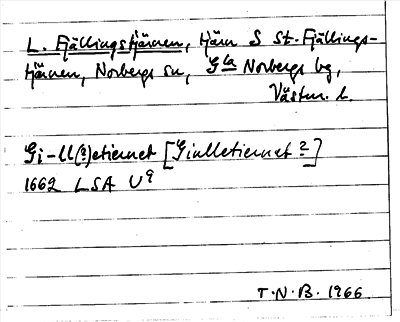 L. Fjällingstjärnen, tjärn S St. Fjällings-
tjärnen, Norbergs sn, Gla Norbergs bg,
Västm. l.
Gi-ll(?)etiernet [Giulletiernet ?]
1662 LSA U9
T.N.B. 1966